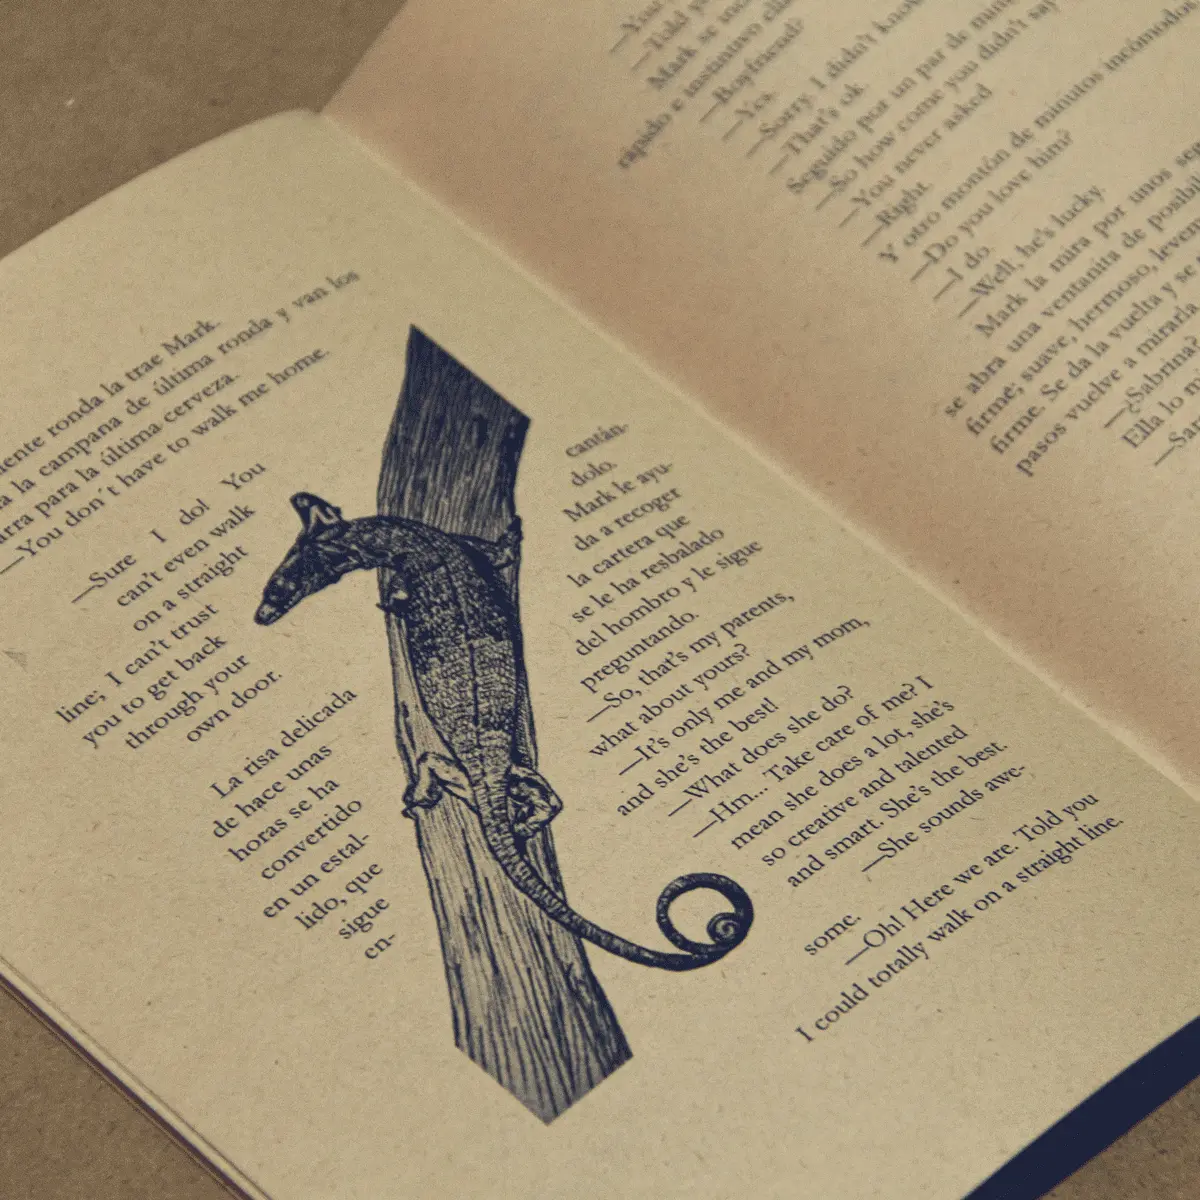 ronda la trae Mark.
la campana de última ronda y van los
para la última cerveza.
—You don´t have to walk me home.
—Sure I do! You
can't even walk
on a straight
line; I can't trust
you to get back
through your
own door.
La risa delicada
de hace unas
horas se ha
convertido
en un estal-
lido, que
sigue
en-
cantán-
dolo.
Mark le ayu-
da a recoger
la cartera que
se le ha resbalado
del hombro y le sigue
preguntando.
—So, that's my parents,
what about yours?
—It's only me and my mom,
and she's the best!
—What does she do?
—Hm... Take care of me? I
mean she does a lot, she's
so creative and talented
and smart. She's the best.
—She sounds awe-
some.
—Oh! Here we are. Told you
I could totally walk on a straight line.
—Told
Mark se
rápido e instintivo
—Boyfriend?
—Yes.
—Sorry, I didn't know
—That's ok.
Seguido por un par de
—So how come you didn't say
—You never asked
—Right.
Y otro montón de minutos incómodos
—Do you love him?
—I do.
—Well, he's lucky.
Mark la mira por unos
se abra una ventanita de
firme; suave, hermoso,
firme. Se da la vuelta y se
pasos vuelve a mirarla
—¿Sabrina?
Ella lo